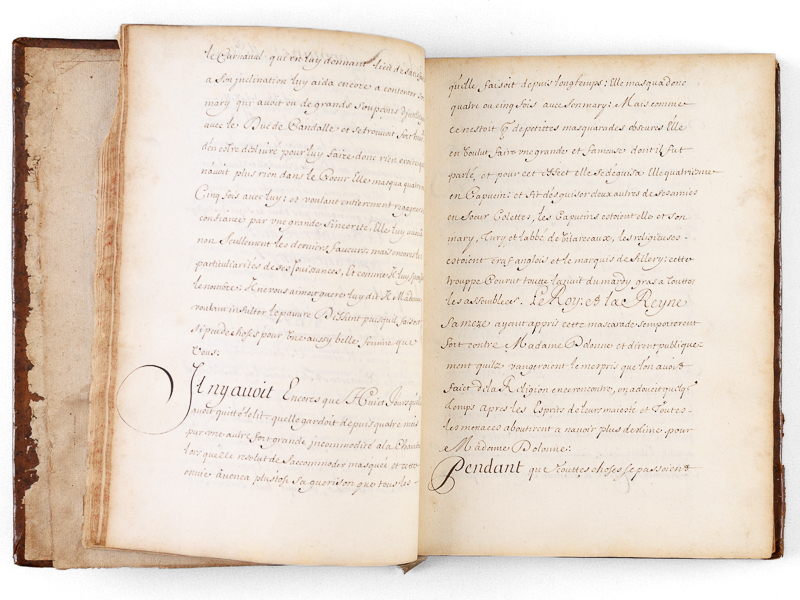 le Carnaval qui en luy donnant lieu de
a Son jnclination luy aida encore a contenter
mary qui auoit eu de grands Soupcons
auec le Duc de Candalle et se trouuoit
den estre deliuré pour luy faire donc rien
n'auoit plus rien dans le Coeur Elle masqua quatre
Cinq fois auec luy; et voulant entierement
confiance par vne grande Sincerité Elle luy
non Seullement les dernieres faueurs, mais
particularités de ses Iouisances, Et comme
Je ne vous aimois guere luy dit
voulant insulter le pauure puisquil faisoit
Si peu de choses pour vne aussy belle femme que
Vous:
Jl ny auoit Encores que Huict Jours
auoit quitté le lit, quelle gardoit depuis quatre mois
par vne autre fort grande incommodité a la
lors quelle resolut de Saccommoder masquee et cette
enuie auença plustost Sa guerison que tous les
qu'elle faisoit depuis longtemps: Elle masqua donc
quatre ou cinq fois auec Son mary: Mais comme
ce n'estoit q de petites masquarades obscures Elle
en voulut faire vne grande et fameuse dont il fut
parlé, et pour cet effet elle se deguisa Elle quatriesme
en Capucin: et fit desguiser deux autres de ses amies
en Soeur Colettes, les Capusins estoient elle et Son
mary, Jury et labbé de Vilarceaux, les religieuses
estoient Craf anglois et le marquis de Sillery: cette
trouppe Courut toutte la nuit du mardy gras a touttes
les assemblées. Le Roy et la Reyne
Sa mere ayant appris cette mascarade semporterent
fort contre Madame Dolonne et dirent publique-
ment quilz vangeroient le mepris que lon auoit
faict de la Religion en ce rencontre, on adoucit quelq
temps apres les Esprits de leurs maiesté et toutes
les menaces aboutirent a n'auoir plus destime pour
Madame Dolonne:
Pendant que touttes choses se passoient